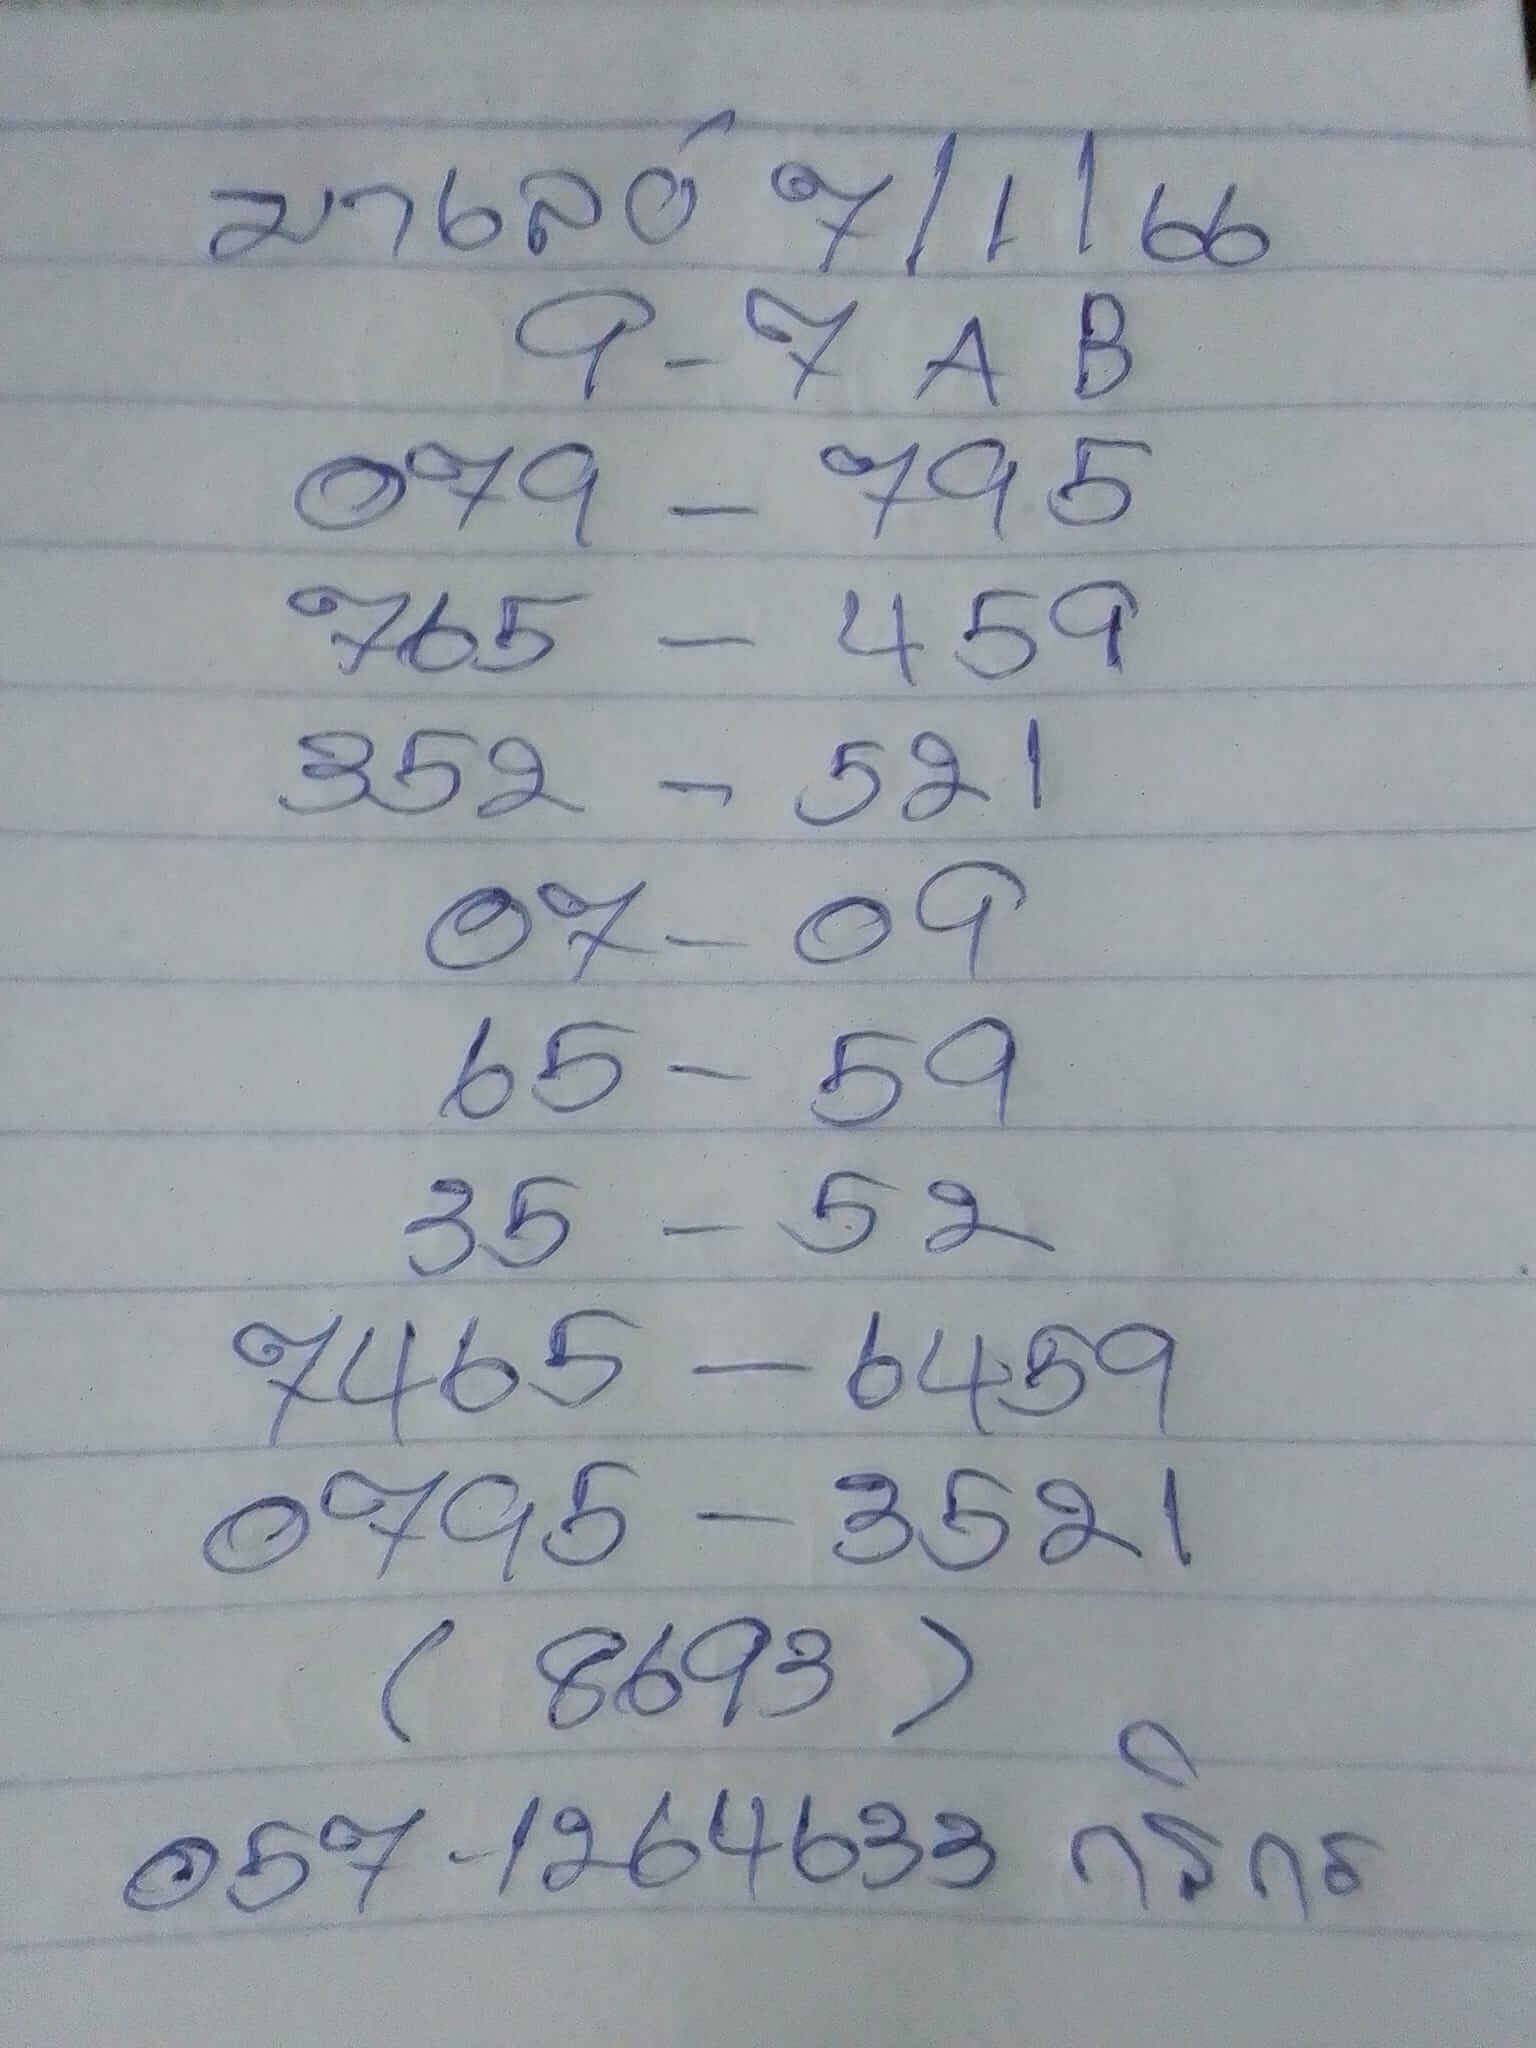 มาเลย์ 7/1/66
9-7 A B
079 - 795
765 - 459
352 - 521
07 - 09
65 - 59
35 - 52
7465 - 6459
0795 - 3521
( 8693 )
057-1264633